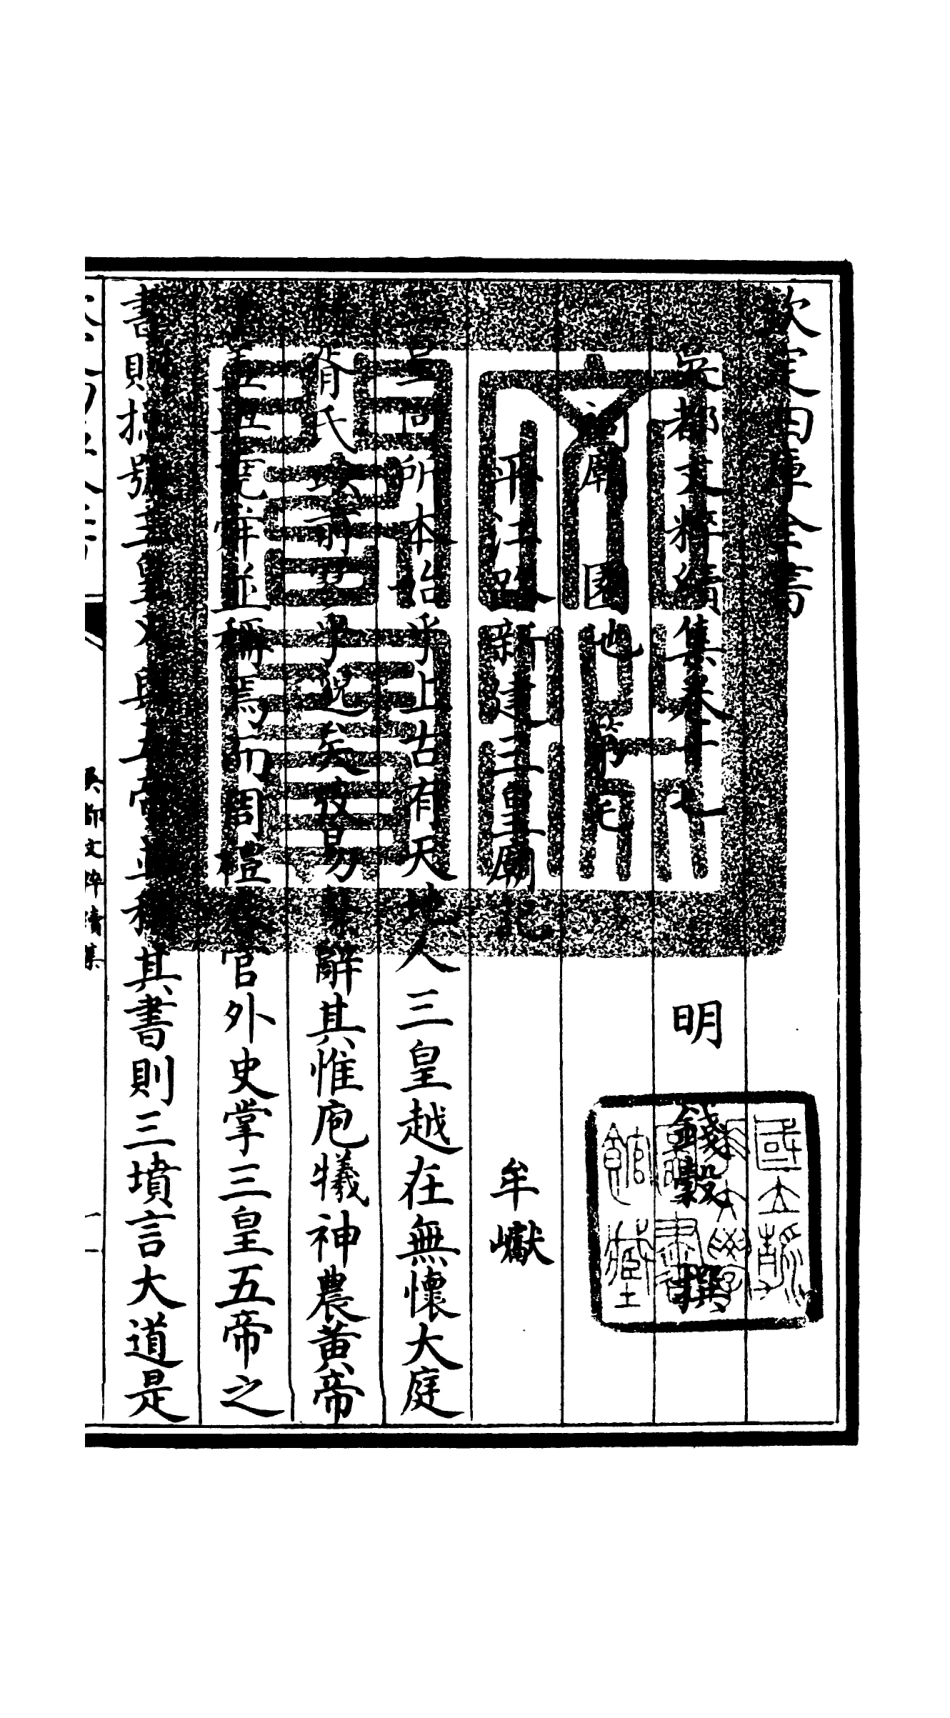 欽定四庫全書
吳都文粹續集卷十七
明 錢穀 撰
祠廟 園池 第宅
平江路新建三皇廟記 牟巘
三皇何所本始乎上古有天地人三皇越在無懷大庭
赫胥氏以前乎學邈矣攷易繫辭其惟庖犧神農黃帝
堯舜並稱焉而周禮春官外史掌三皇五帝之
書則揔號三皇又與五帝並稱其書則三墳言大道是
吳都文粹續集
一
國立 大學 圖書館藏